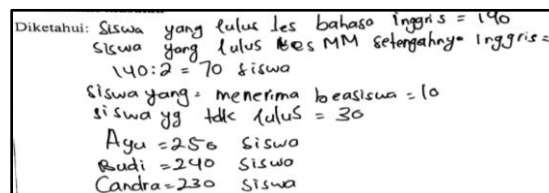 Diketahui: Siswa yang lulus tes bahasa inggris = 140
Siswa yang lulus tes MM setengahnya Inggris =
140:2 = 70 siswa
siswa yang = menerima beasiswa = 10
siswa yg tdk lulus = 30
Ayu = 250 siswa
Budi = 240 siswa
Candra = 230 siswa